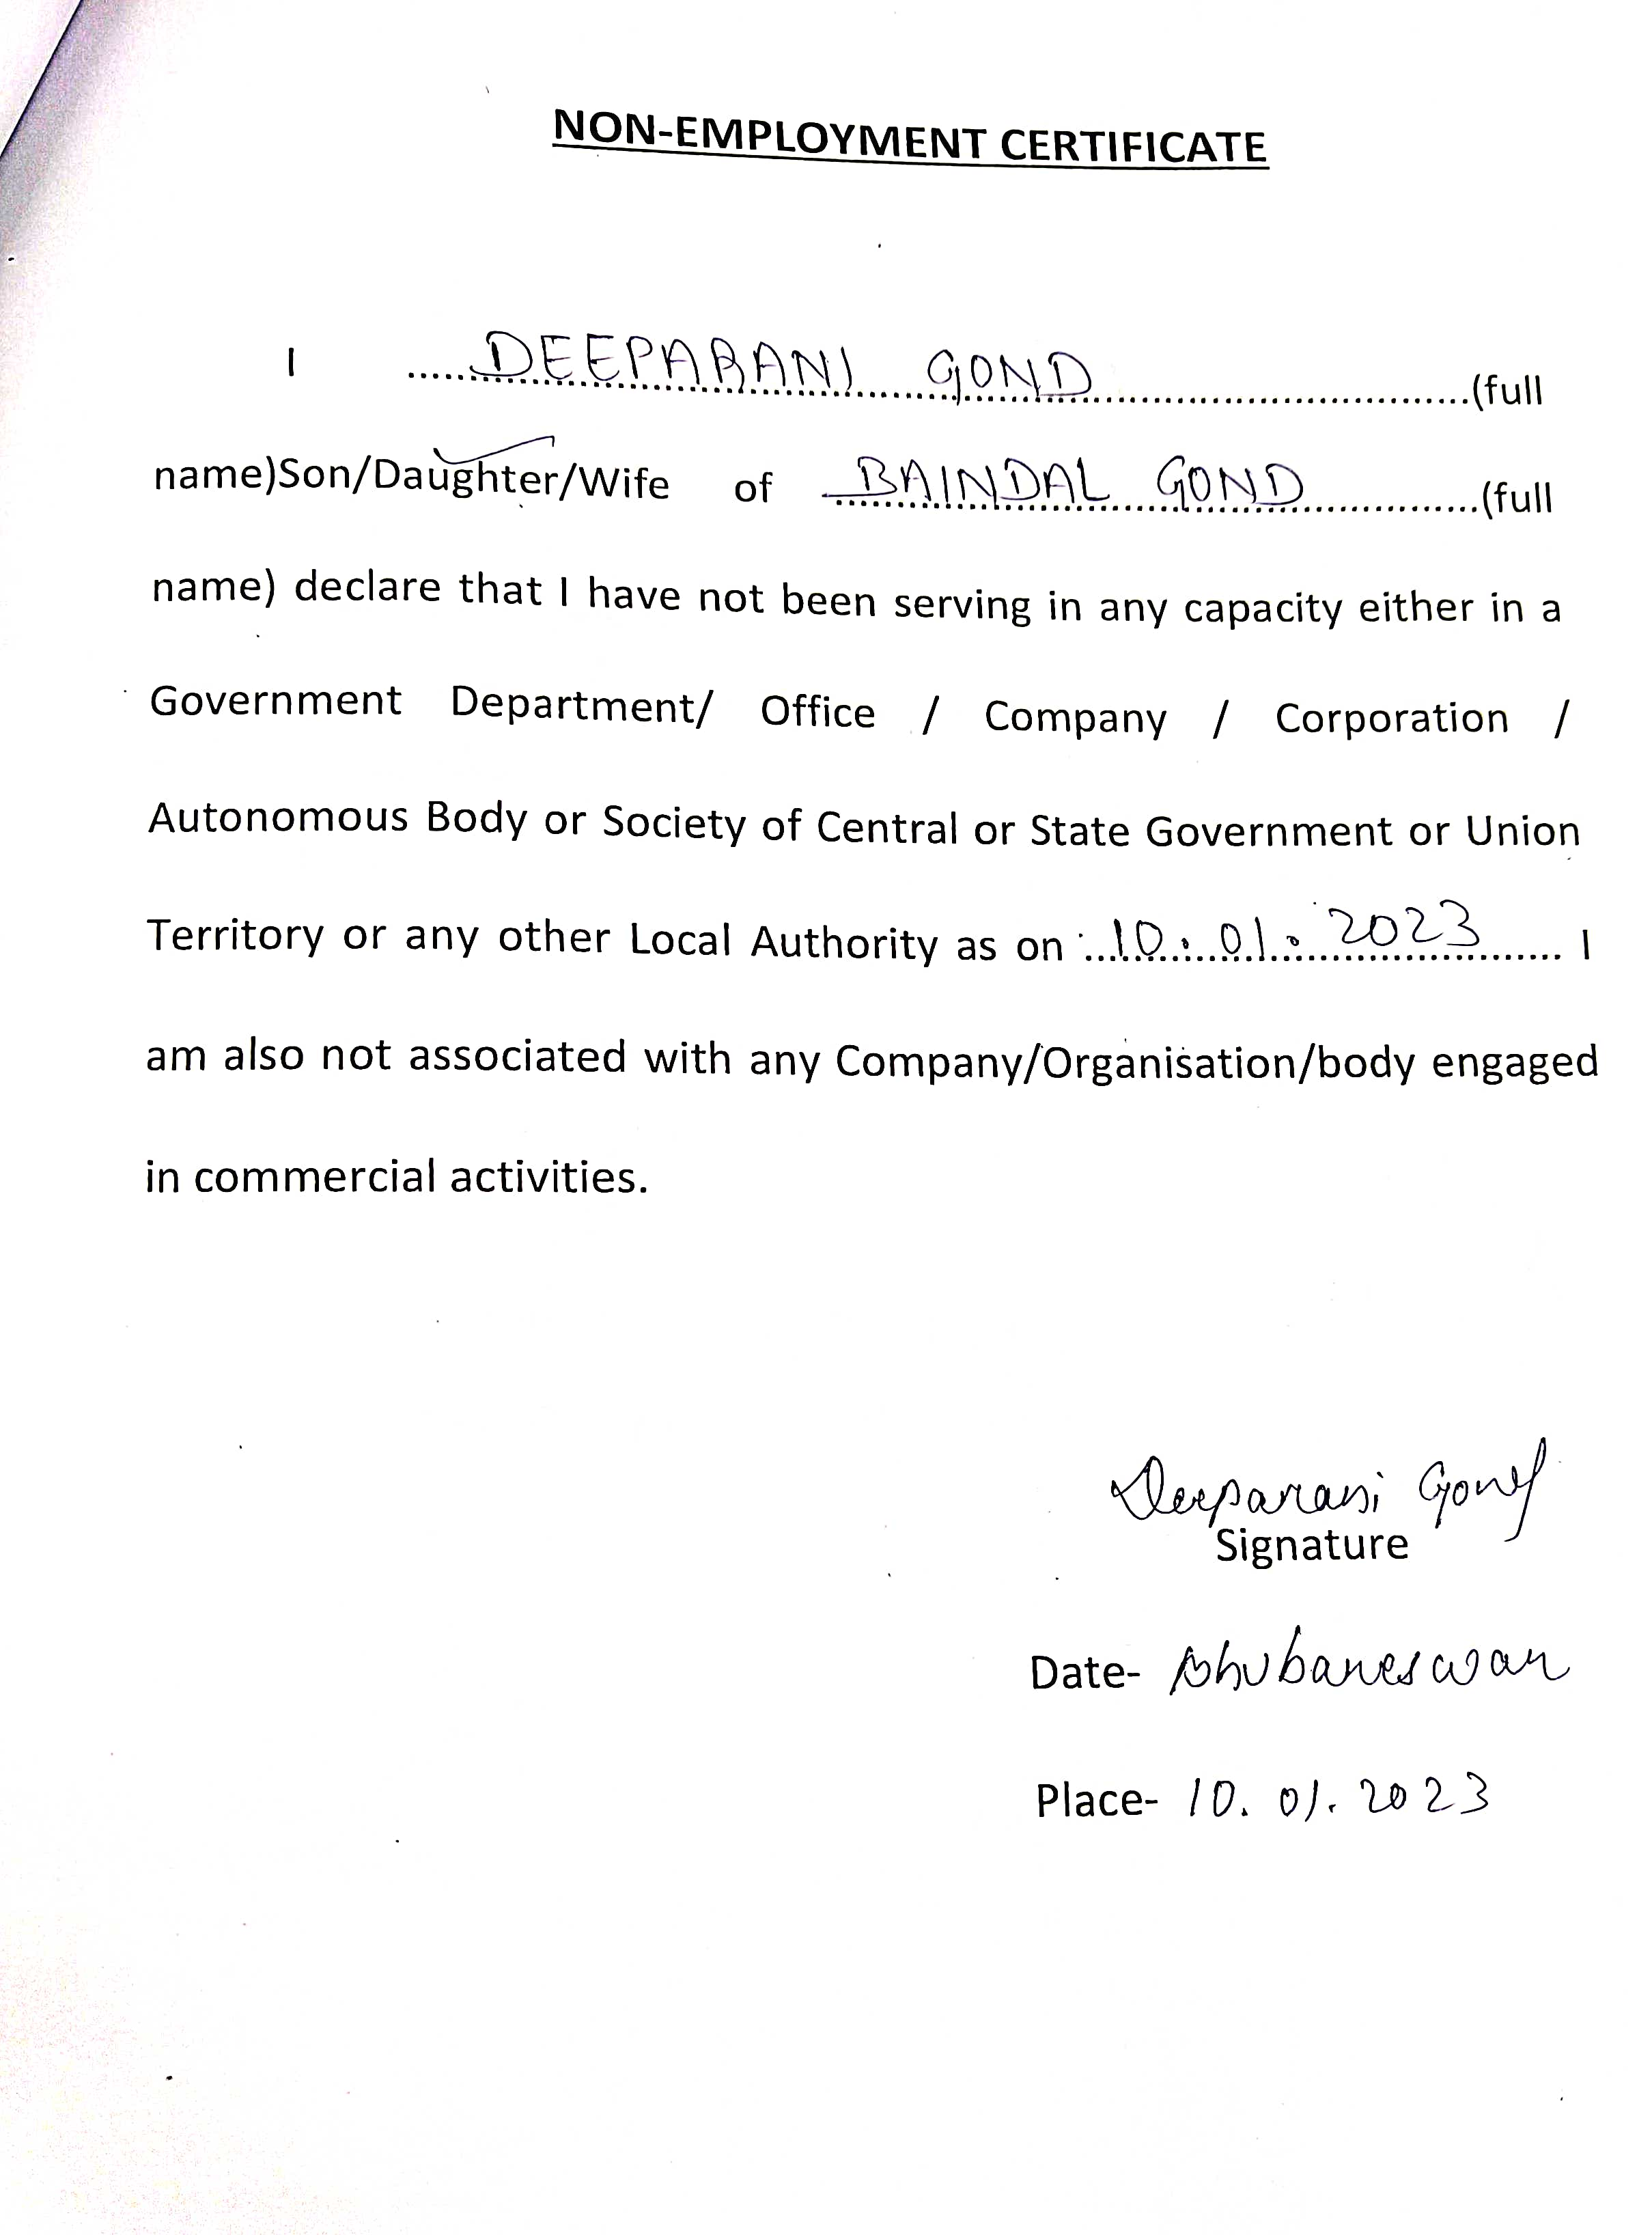 NON-EMPLOYMENT CERTIFICATE
I ..... DEEPARANI GOND .....(full
name)Son/Daughter/Wife of BAINDAL GOND .....(full
name) declare that I have not been serving in any capacity either in a
Government Department/ Office / Company / Corporation /
Autonomous Body or Society of Central or State Government or Union
Territory or any other Local Authority as on 10.01.2023 ..... I
am also not associated with any Company/Organisation/body engaged
in commercial activities.
Deeparani Gond
Signature
Date- Bhubaneswar
Place- 10.01.2023